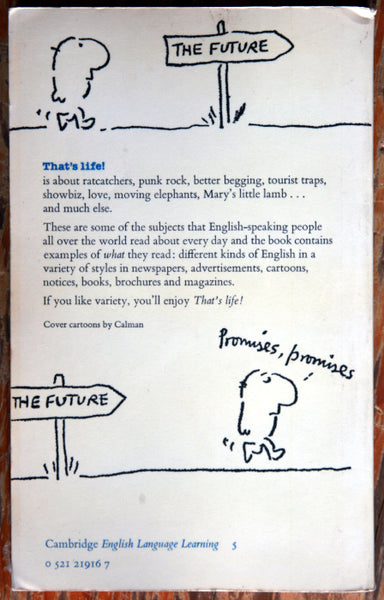 THE FUTURE
That's life!
is about ratcatchers, punk rock, better begging, tourist traps,
showbiz, love, moving elephants, Mary's little lamb . . .
and much else.
These are some of the subjects that English-speaking people
all over the world read about every day and the book contains
examples of what they read: different kinds of English in a
variety of styles in newspapers, advertisements, cartoons,
notices, books, brochures and magazines.
If you like variety, you'll enjoy That's life!
Cover cartoons by Calman
Promises, promises
THE FUTURE
Cambridge English Language Learning 5
0 521 21916 7